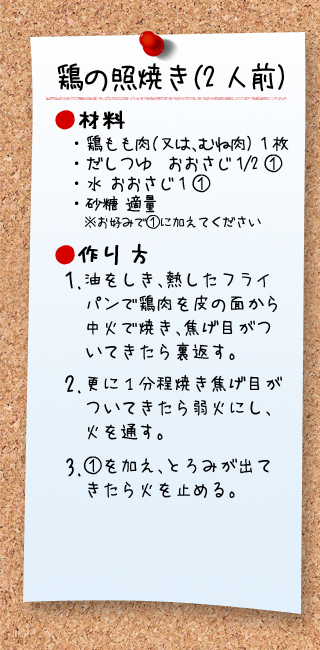 鶏の照焼き(2 人前)
●材料
・鶏もも肉(又は、むね肉) 1 枚
・だしつゆ おおさじ 1/2 ①
・水 おおさじ 1 ①
・砂糖 適量
※お好みで①に加えてください
●作り方
1. 油をしき、熱したフライ
パンで鶏肉を皮の面から
中火で焼き、焦げ目がつ
いてきたら裏返す。
2. 更に 1 分程焼き焦げ目が
ついてきたら弱火にし、
火を通す。
3. ①を加え、とろみが出て
きたら火を止める。